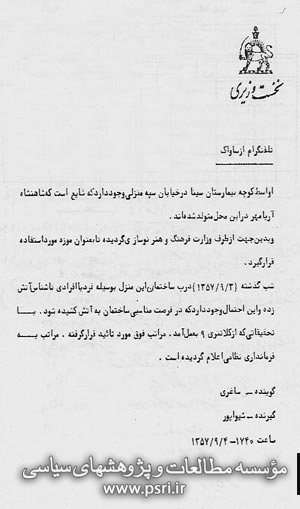 نخست وزیری
تلفنگرام از ساواک
اواسط کوچه بیمارستان سینا در خیابان سپه منزلی وجود دارد که شایع است که شاهنشاه
آریامهر در این محل متولد شده‌اند.
و بدین جهت از طرف وزارت فرهنگ و هنر نوسازی گردیده تا بعنوان موزه مورد استفاده
قرار گیرد.
شب گذشته (۱۳۵۷/۹/۳) درب ساختمان این منزل بوسیله فرد یا افرادی ناشناس آتش
زده و این احتمال وجود دارد که در فرصت مناسبی ساختمان به آتش کشیده شود. با
تحقیقاتی که از کلانتری ۹ بعمل آمد. مراتب فوق مورد تائید قرار گرفته. مراتب به
فرمانداری نظامی اعلام گردیده است.
گوینده - ساغری
گیرنده - شیواپور
ساعت ۱۷۴۰-۱۳۵۷/۹/۴
مؤسسه مطالعات و پژوهشهای سیاسی
www.psri.ir